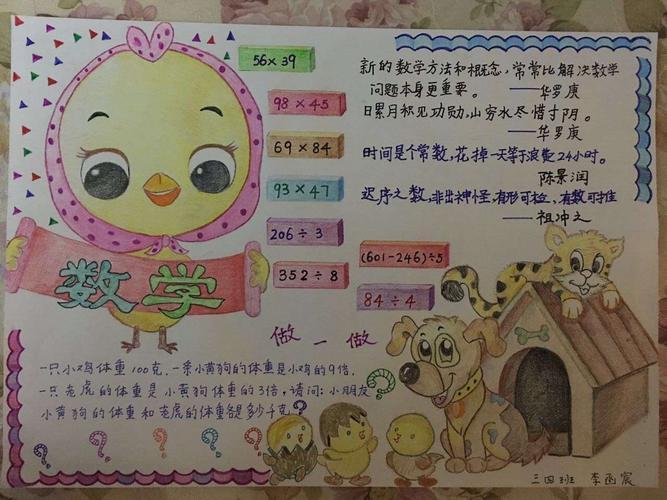 56×39
98×45
69×84
93×47
206÷3
352÷8
(601-246)÷5
84÷4
新的数学方法和概念,常常比解决数学
问题本身更重要。
——华罗庚
日累月积见功勋,山穷水尽惜寸阴。
——华罗庚
时间是个常数,花掉一天等于浪费24小时。
陈景润
迟序之数,非出神怪,有形可检,有数可推
——祖冲之
数学
做一做
一只小鸡体重100克,一条小黄狗的体重是小鸡的9倍,
一只老虎的体重是小黄狗体重的3倍,请问:小朋友,
小黄狗的体重和老虎的体重各是多少千克?
三四班 李函宸